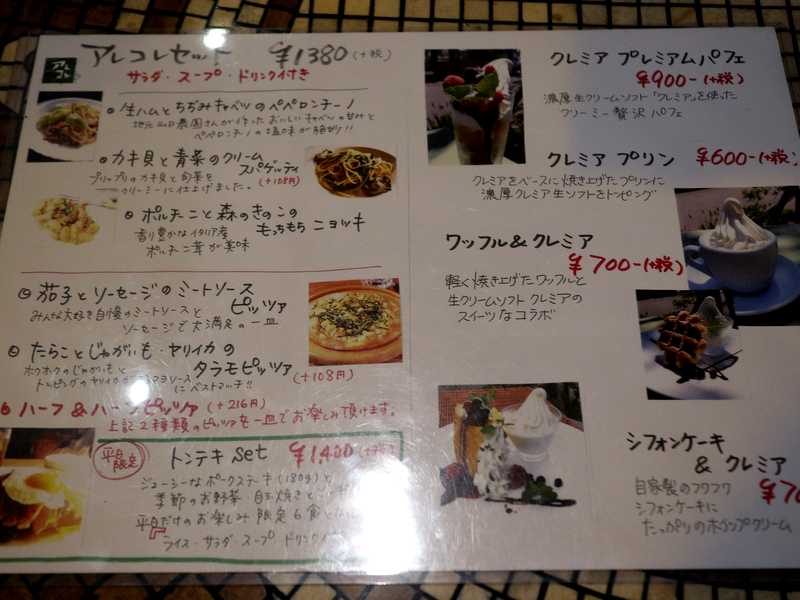 アレコレ
アレコレセット ¥1380(+税)
サラダ・スープ・ドリンク付き
生ハムとちぢみキャベツのペペロンチーノ
地元 農園さんが作ったおいしいキャベツの甘みと
ペペロンチーノの塩味が絶妙!!
カキ貝と青菜のクリーム
スパゲッティ
プリップリのカキと旬菜を
クリーミーに仕上げました。
(+108円)
ポルチーニと森のきのこの
もっちもち ニョッキ
香り豊かなイタリア産
ポルチーニ茸が美味
茄子とソーセージのミートソース
ピッツァ
みんな大好き自慢のミートソースと
ソーセージで大満足の一皿
たらことじゃがいも・ヤリイカの
タラモピッツァ
ホクホクのじゃがいもと
トッピングのヤリイカが マヨソース
にベストマッチ!!
(+108円)
ハーフ&ハーフピッツァ (+216円)
上記2種類のピッツァを一皿でお楽しみ頂けます。
平日限定
トンテキ set ¥1,400(+税)
ジューシーなポークステーキ(180g)と
季節のお野菜 目玉焼きと
平日だけのお楽しみ 限定6食と
ライス・サラダ・スープ ドリンク
クレミア プレミアムパフェ
¥900-(+税)
濃厚生クリームソフト「クレミア」を使った
クリーミー贅沢パフェ
クレミア プリン ¥600-(+税)
クレミアをベースに焼き上げたプリンに
濃厚クレミア生ソフトをトッピング
ワッフル&クレミア
¥700-(+税)
軽く焼き上げたワッフルと
生クリームソフト クレミアの
スイーツなコラボ
シフォンケーキ
& クレミア
自家製のフワフワ
シフォンケーキに
たっぷりのホイップクリーム